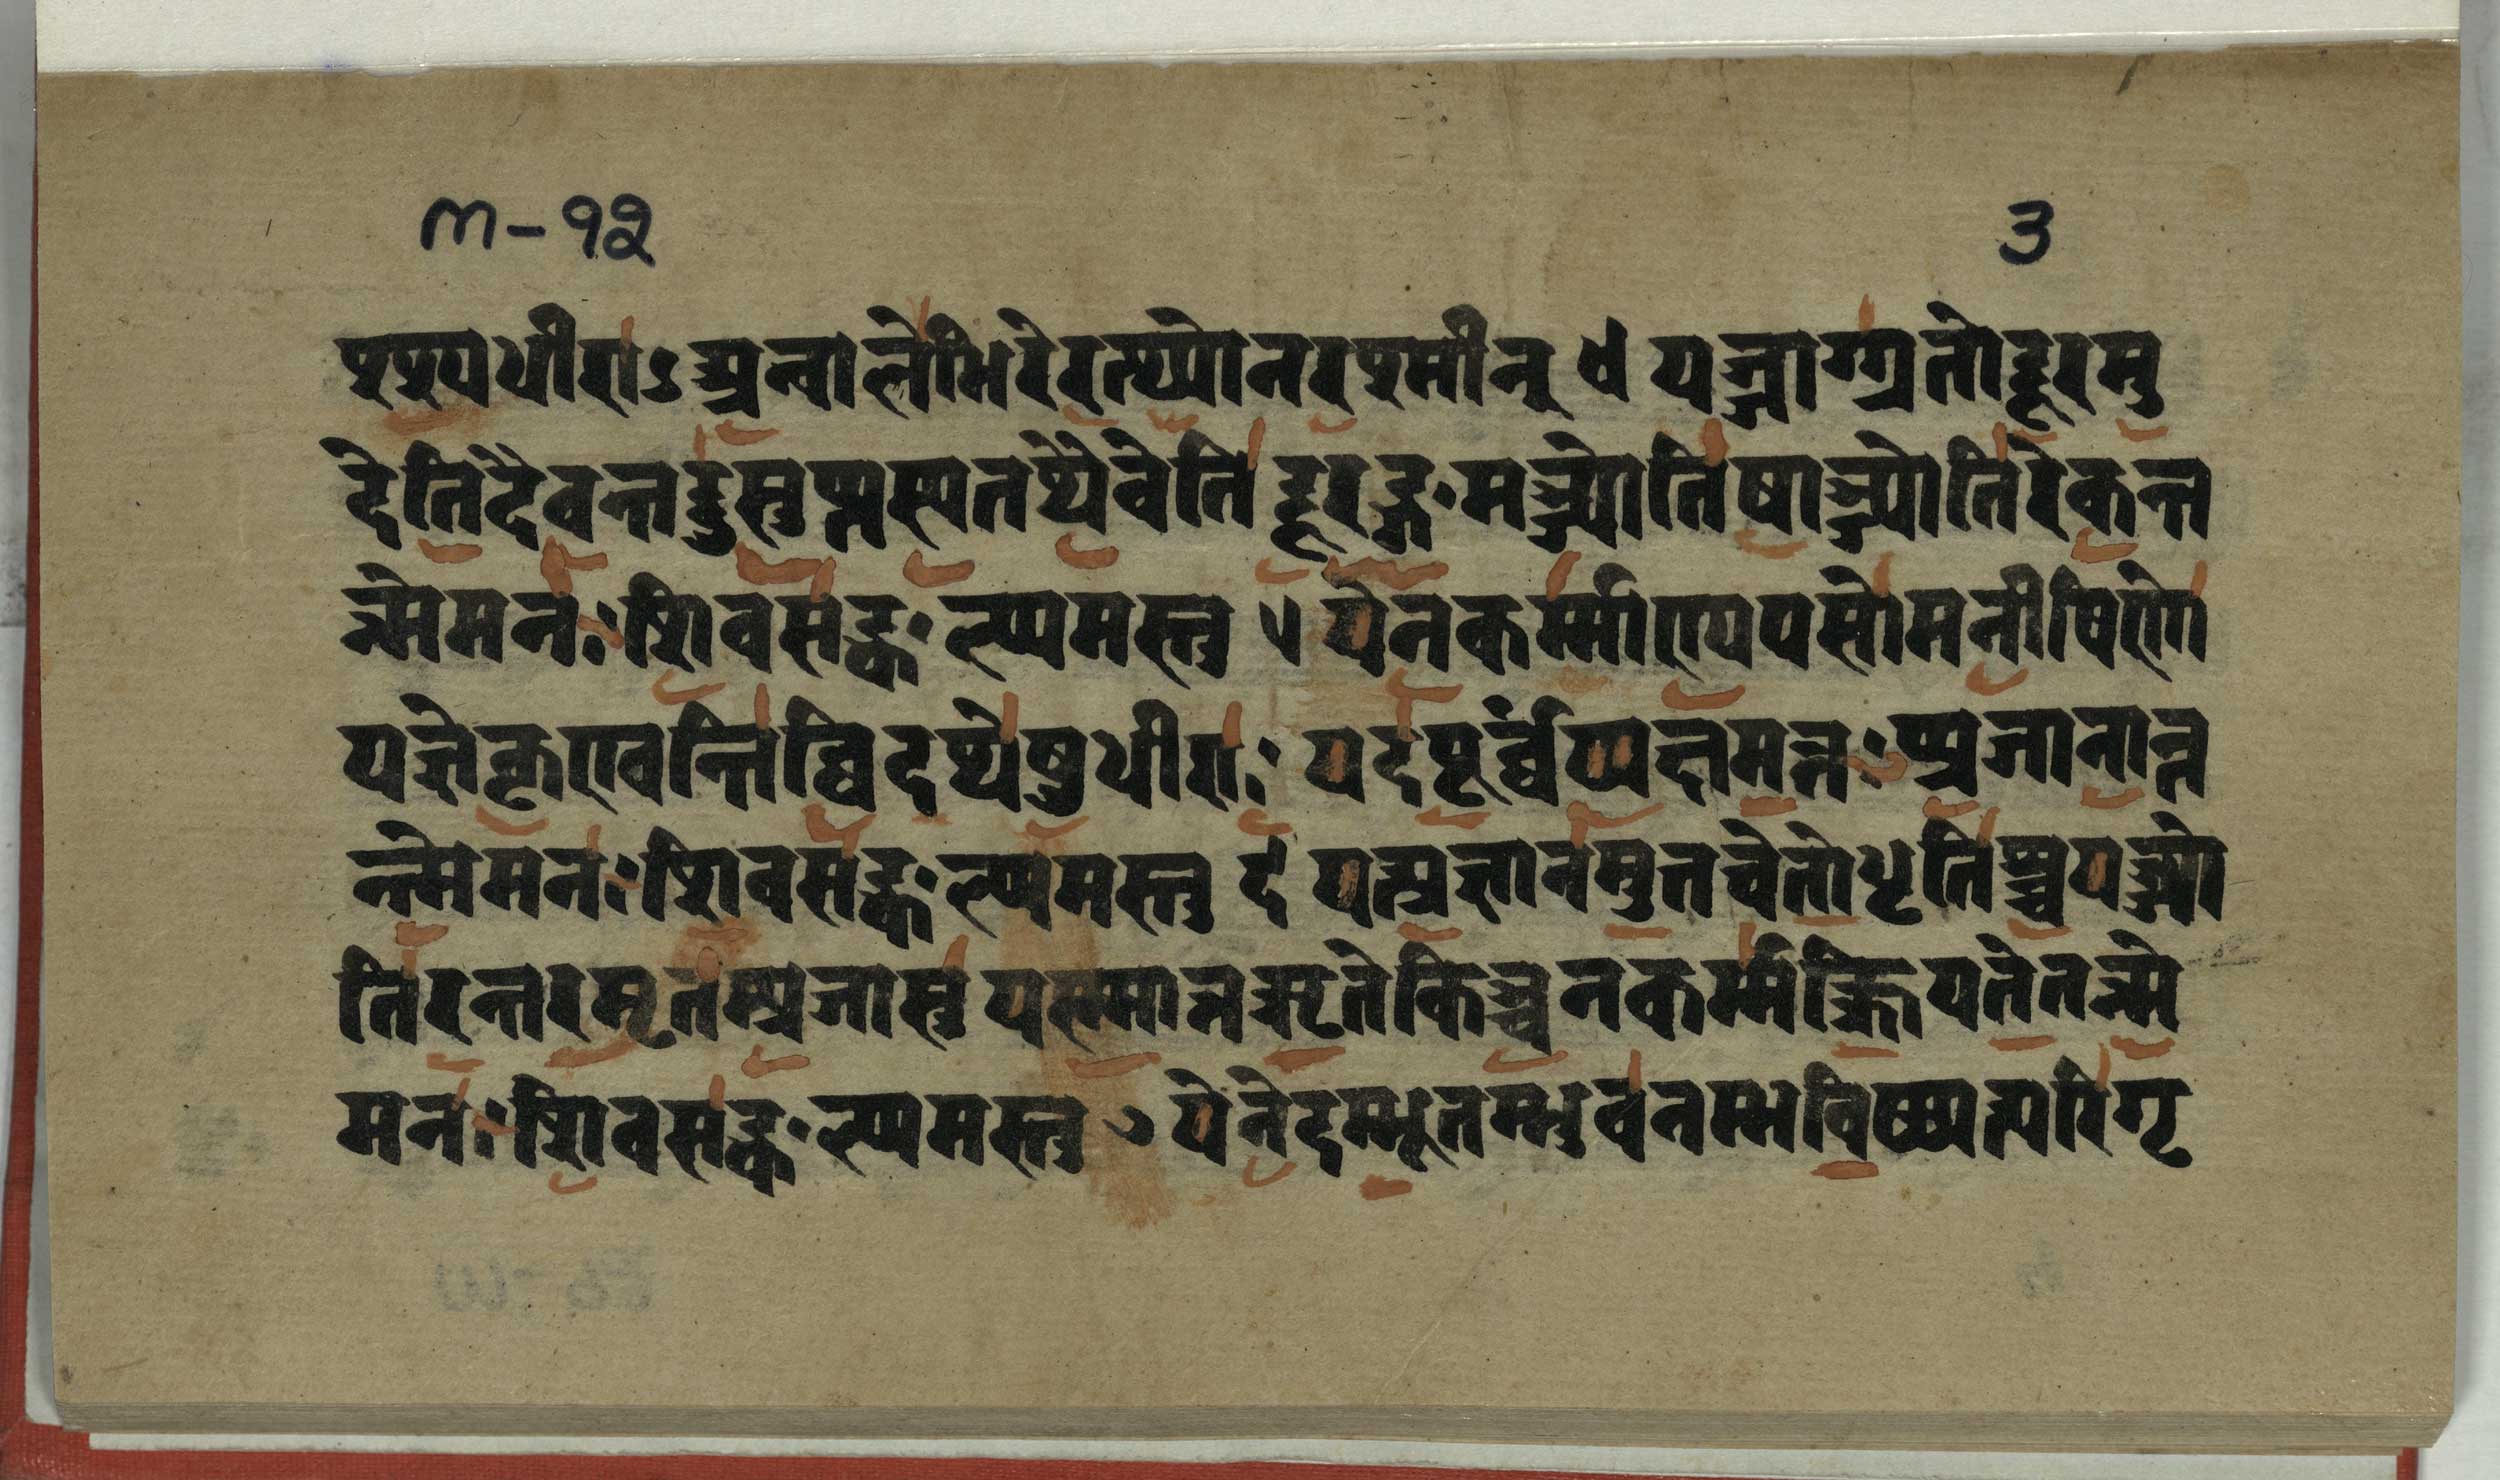 m-१२ 3
पश्यधीराऽअन्वालेभिरेरत्थ्योनरश्मीन् ४ यज्जाग्ग्रतोदूरमु
देतिदैवन्तदुसुप्तस्यतथैवेति दूरङ्गमञ्ज्योतिषाञ्ज्योतिरेकन्त
न्मेमनः शिवसङ्कल्प्पमस्तु ५ येनकर्म्माण्यपसोमनीषिणो
यज्ञेकृण्वन्तिव्विदथेषुधीराः यदपूर्व्वंय्यक्षमन्तः प्प्रजानान्त
न्मेमनः शिवसङ्कल्प्पमस्तु ६ यत्प्रज्ञानमुतचेतोधृतिश्च्चयज्ज्यो
तिरन्तरमृतम्प्रजासु यस्मान्नऋतेकिञ्चनकर्म्मक्क्रियतेतन्मे
मनः शिवसङ्कल्प्पमस्तु ७ येनेदम्भूतम्भुवनम्भविष्ष्यत्परिगृ